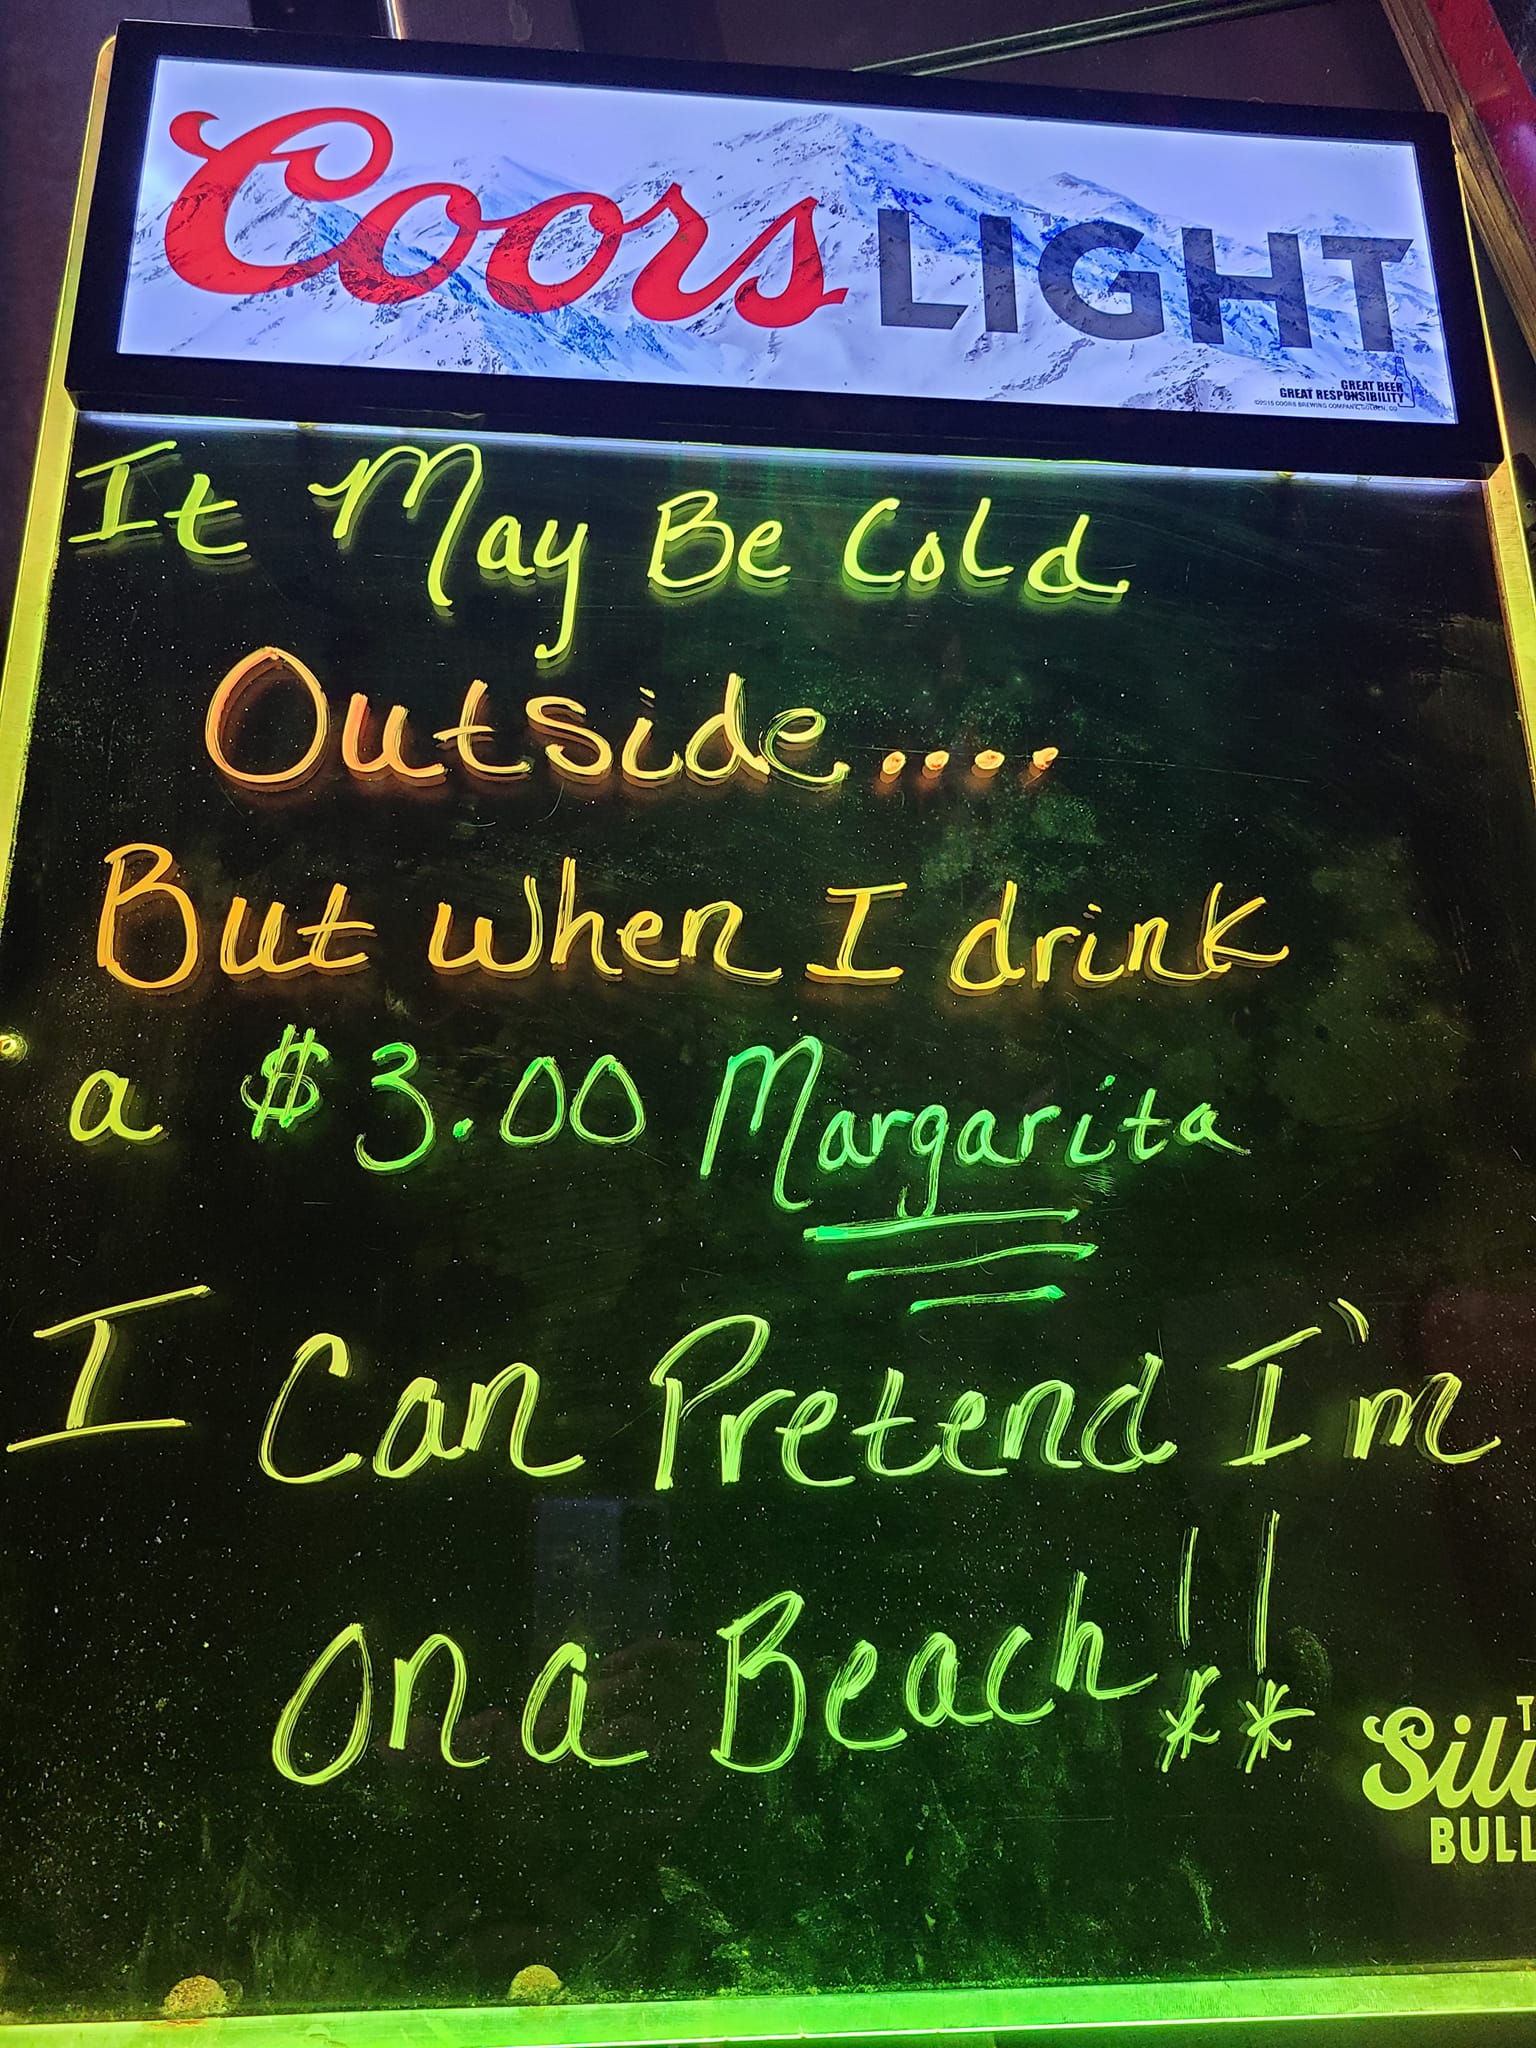 Coors LIGHT
GREAT BEER
GREAT RESPONSIBILITY
©2015 COORS BREWING COMPANY, GOLDEN, CO
It May Be Cold
Outside....
But when I drink
a $3.00 Margarita
I Can Pretend I'm
On a Beach!!
T
Sil
BULL